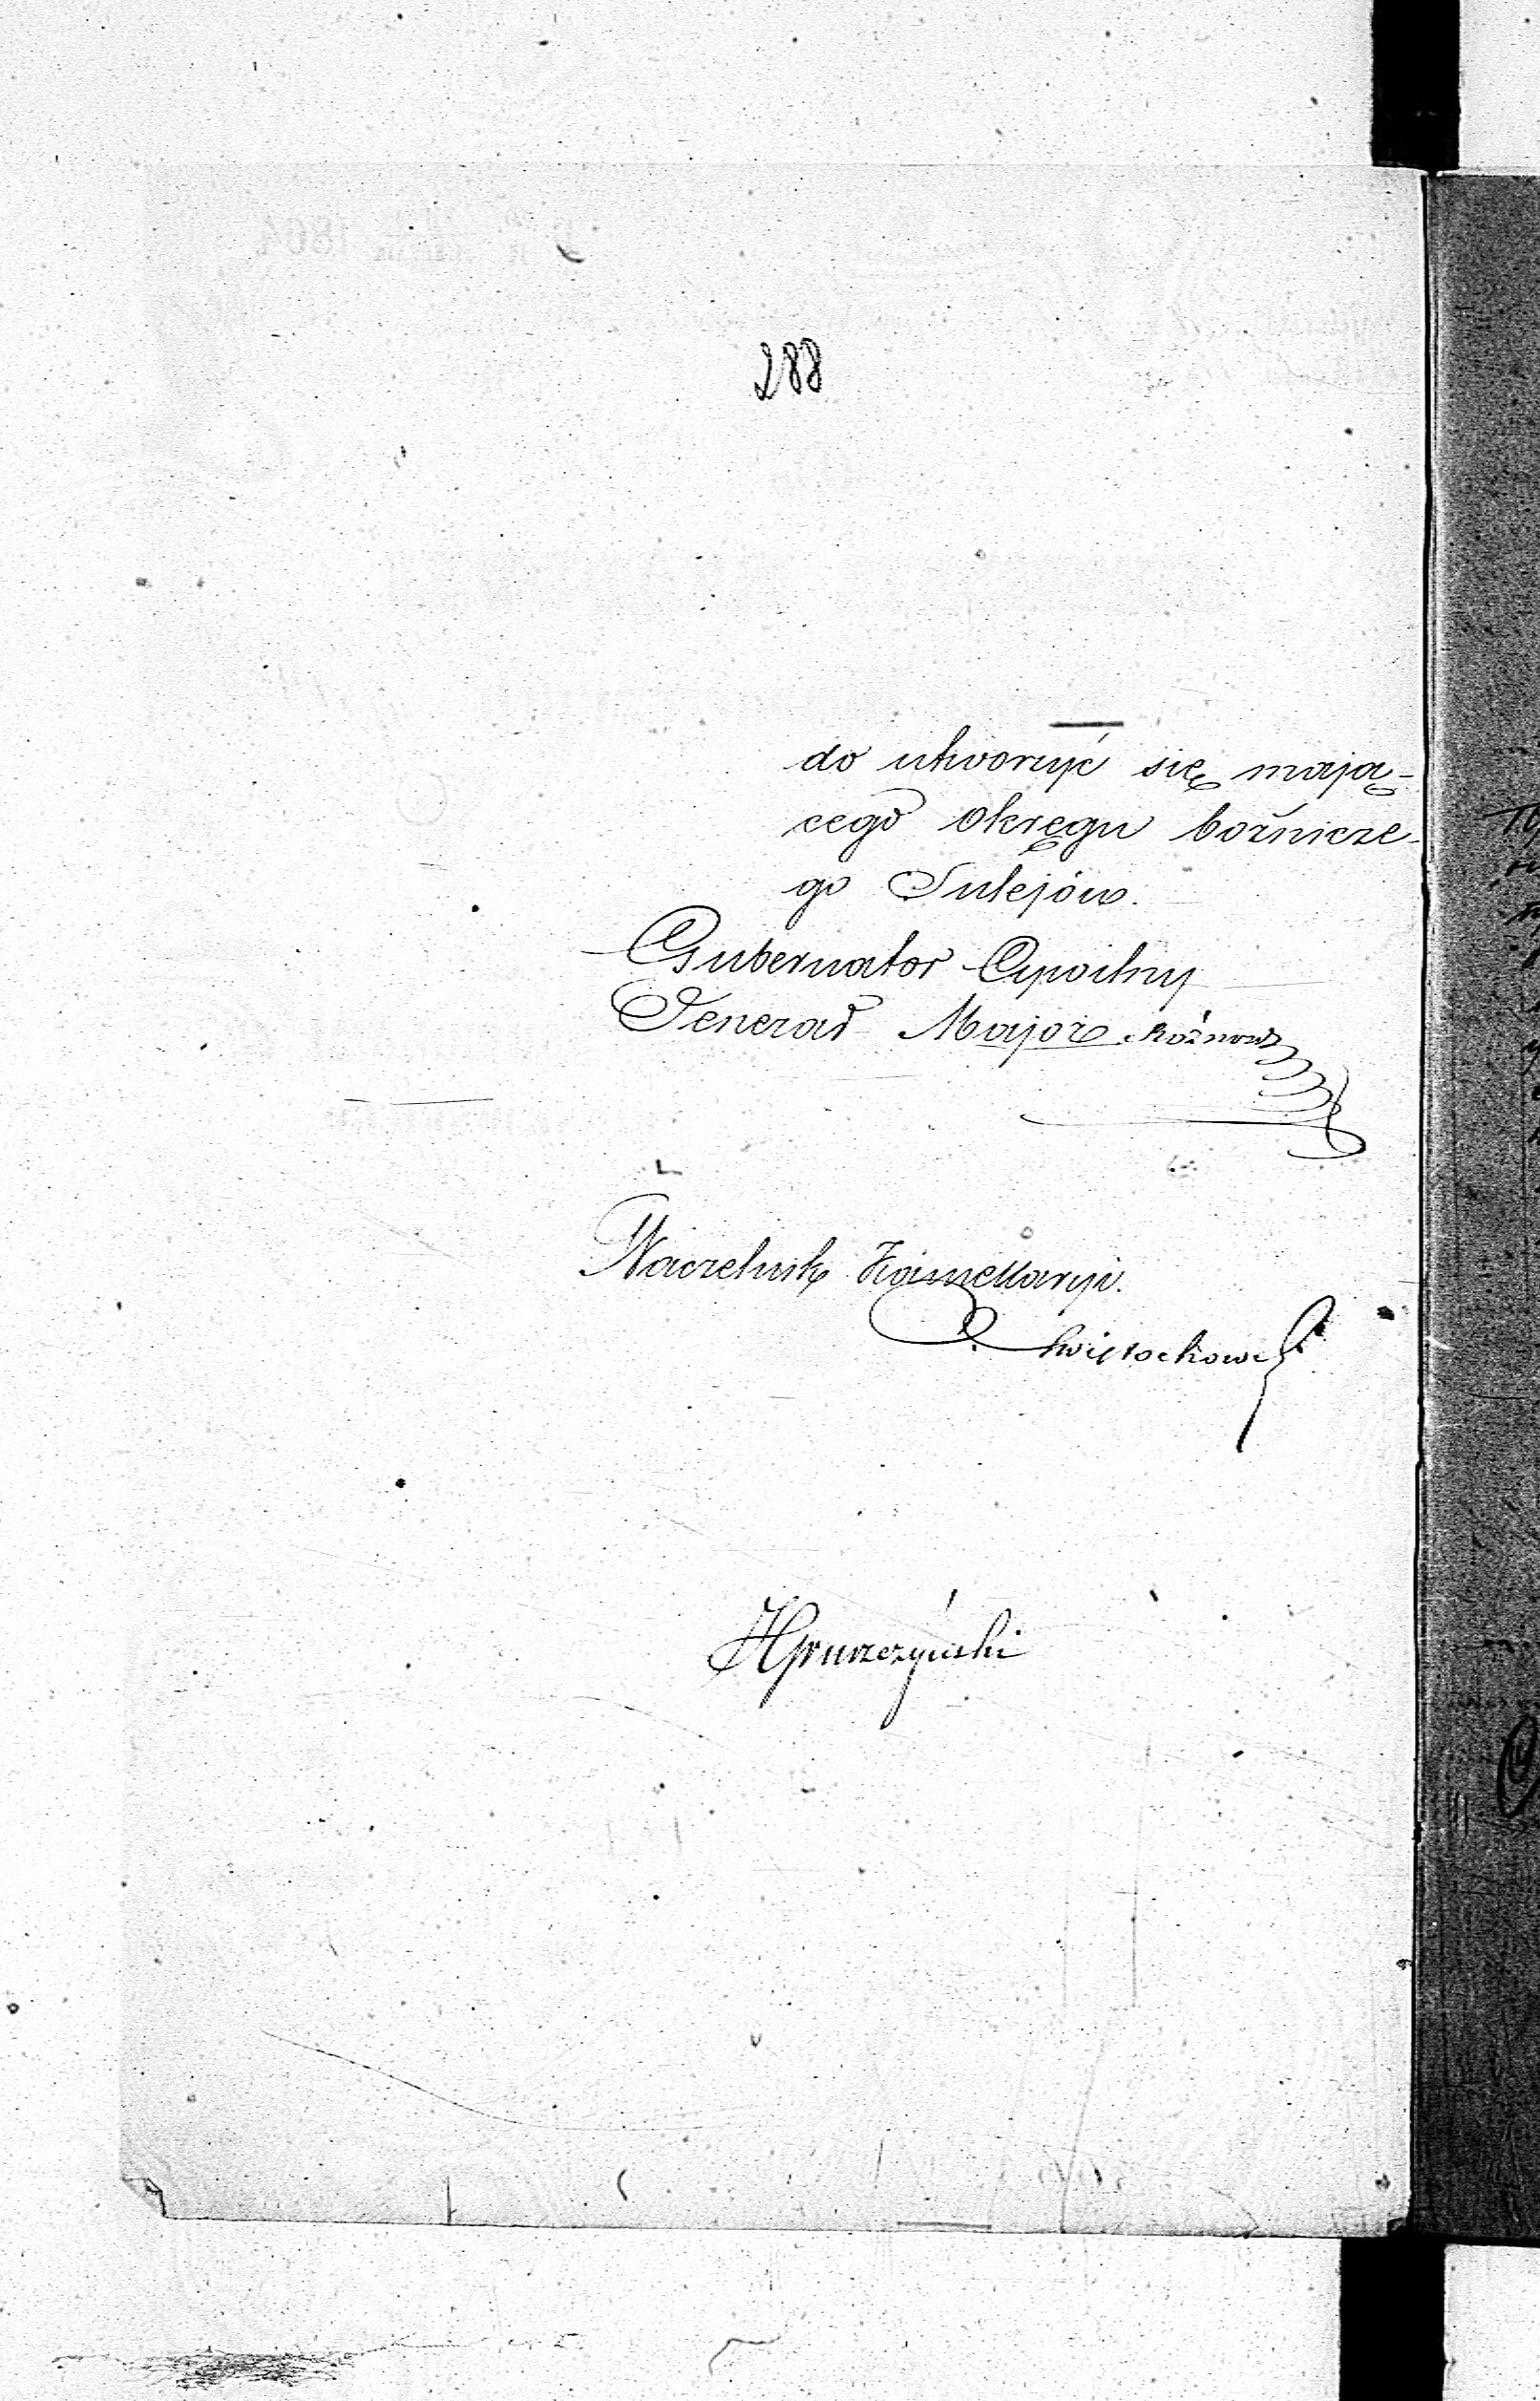 288
do utworzyć się mają-
cego Okręgu bożnicze-
go Sulejów.
Gubernator Cywilny
Jenerał Major Rożnow
Naczelnik Kancellaryi.
Świętochowski